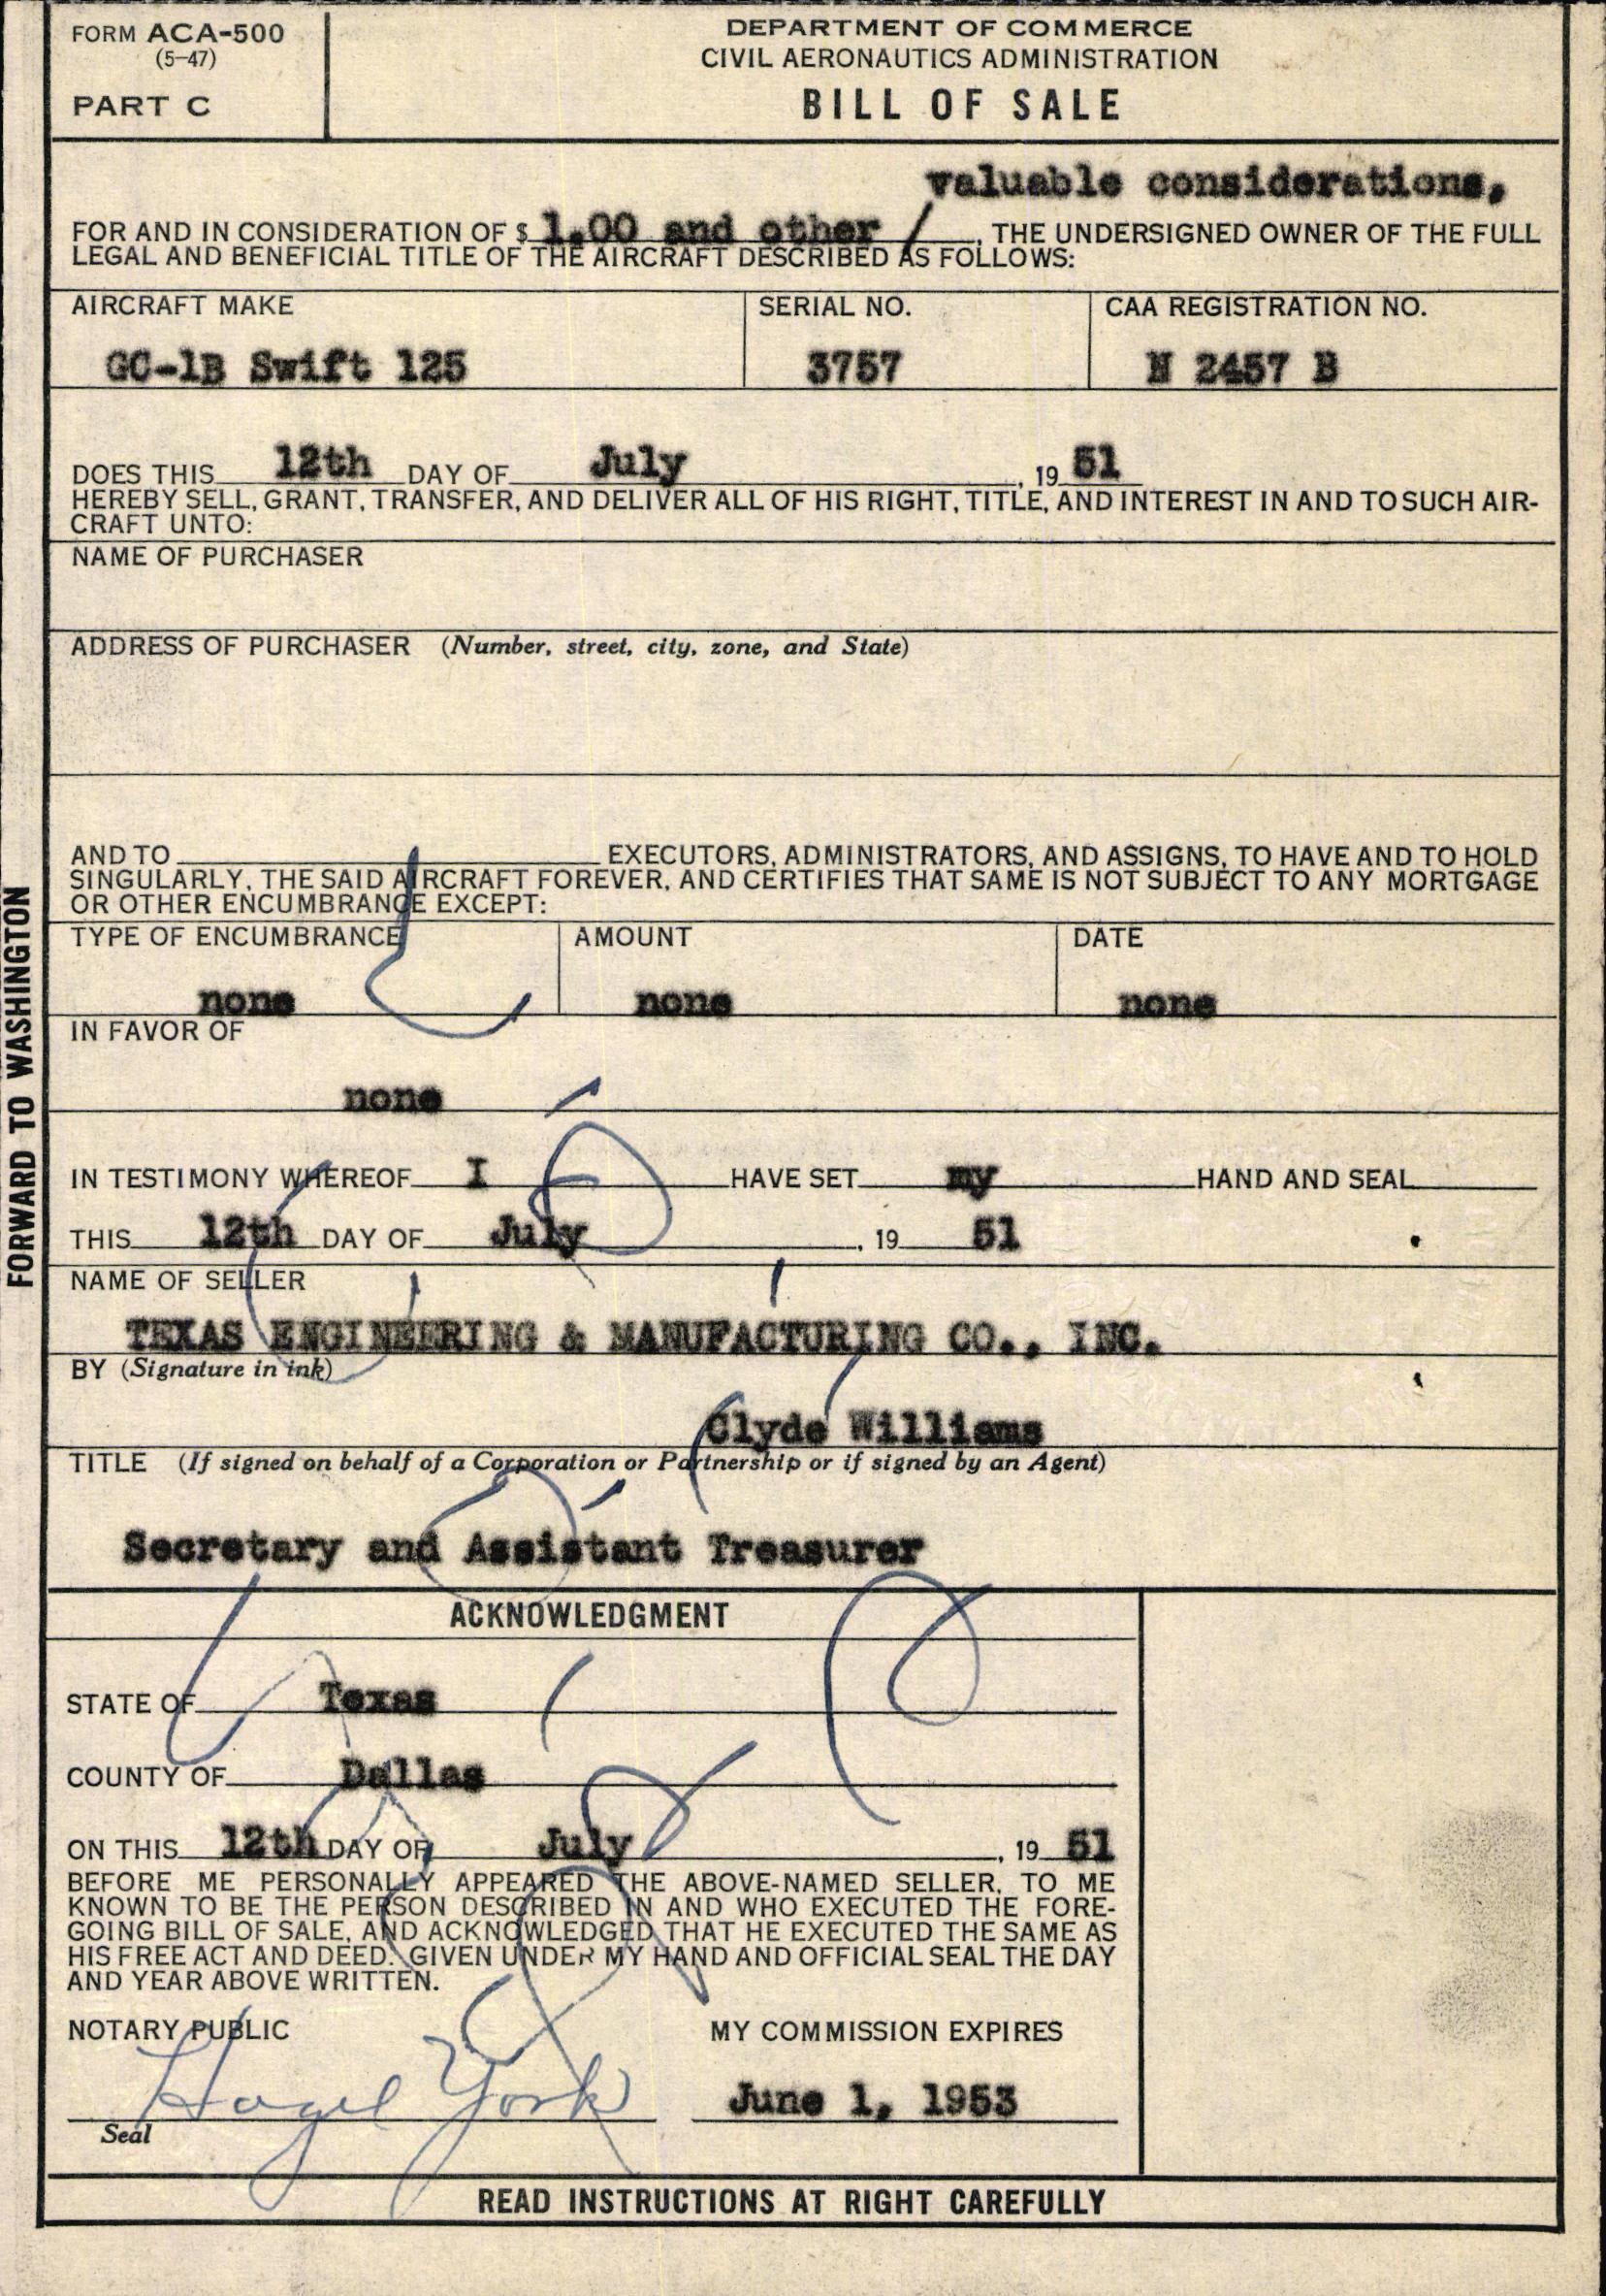 FORM ACA-500
(5-47)
PART C
DEPARTMENT OF COMMERCE
CIVIL AERONAUTICS ADMINISTRATION
BILL OF SALE
valuable considerations,
FOR AND IN CONSIDERATION OF $ 1.00 and other / , THE UNDERSIGNED OWNER OF THE FULL
LEGAL AND BENEFICIAL TITLE OF THE AIRCRAFT DESCRIBED AS FOLLOWS:
AIRCRAFT MAKE SERIAL NO. CAA REGISTRATION NO.
GC-1B Swift 125 3757 N 2457 B
DOES THIS 12th DAY OF July , 19 51
HEREBY SELL, GRANT, TRANSFER, AND DELIVER ALL OF HIS RIGHT, TITLE, AND INTEREST IN AND TO SUCH AIR-
CRAFT UNTO:
NAME OF PURCHASER
ADDRESS OF PURCHASER (Number, street, city, zone, and State)
AND TO EXECUTORS, ADMINISTRATORS, AND ASSIGNS, TO HAVE AND TO HOLD
SINGULARLY, THE SAID AIRCRAFT FOREVER, AND CERTIFIES THAT SAME IS NOT SUBJECT TO ANY MORTGAGE
OR OTHER ENCUMBRANCE EXCEPT:
TYPE OF ENCUMBRANCE AMOUNT DATE
none none none
IN FAVOR OF
none
IN TESTIMONY WHEREOF I HAVE SET my HAND AND SEAL
THIS 12th DAY OF July , 19 51
NAME OF SELLER
TEXAS ENGINEERING & MANUFACTURING CO., INC.
BY (Signature in ink)
Clyde Williams
TITLE (If signed on behalf of a Corporation or Partnership or if signed by an Agent)
Secretary and Assistant Treasurer
ACKNOWLEDGMENT
STATE OF Texas
COUNTY OF Dallas
ON THIS 12th DAY OF July , 19 51
BEFORE ME PERSONALLY APPEARED THE ABOVE-NAMED SELLER, TO ME
KNOWN TO BE THE PERSON DESCRIBED IN AND WHO EXECUTED THE FORE-
GOING BILL OF SALE, AND ACKNOWLEDGED THAT HE EXECUTED THE SAME AS
HIS FREE ACT AND DEED. GIVEN UNDER MY HAND AND OFFICIAL SEAL THE DAY
AND YEAR ABOVE WRITTEN.
NOTARY PUBLIC MY COMMISSION EXPIRES
Hazel York June 1, 1953
Seal
READ INSTRUCTIONS AT RIGHT CAREFULLY
FORWARD TO WASHINGTON